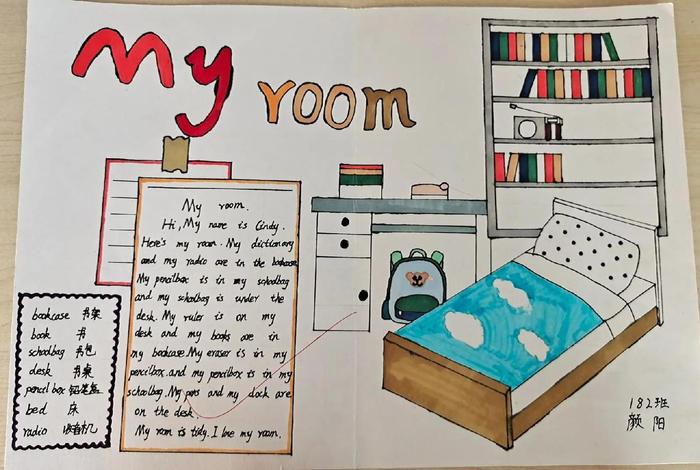 My room
My room.
Hi, My name is Cindy.
Here's my room. My dictionary
and my radio are in the bookcase.
My pencilbox is in my schoolbag
and my schoolbag is under the
desk. My ruler is on my
desk and my books are in
my bookcase. My eraser is in my
pencilbox. and my pencilbox is in my
schoolbag. My pens and my clock are
on the desk.
My room is tidy. I love my room.
bookcase 书架
book 书
schoolbag 书包
desk 书桌
pencil box 铅笔盒
bed 床
radio 收音机
182班
颜阳